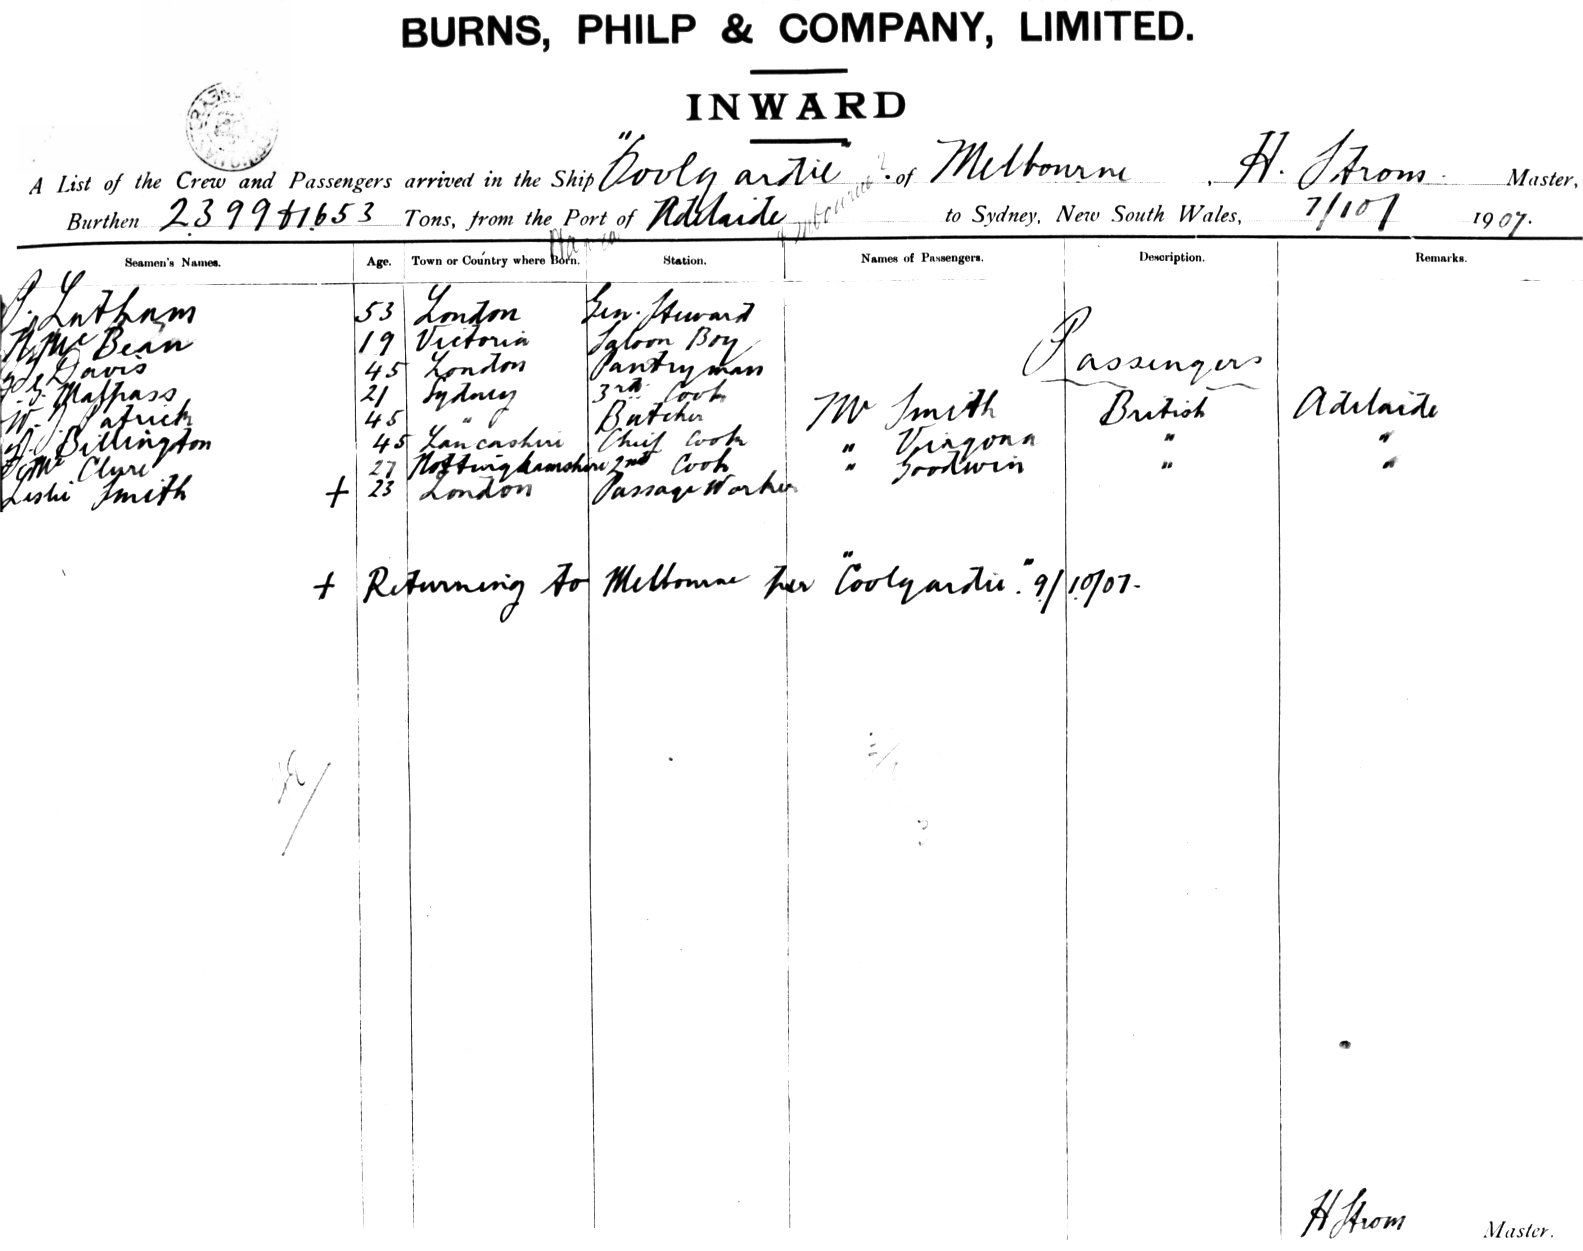 BURNS, PHILP & COMPANY, LIMITED.
INWARD
A List of the Crew and Passengers arrived in the Ship "Coolgardie" of Melbourne, H. Strom Master,
Burthen 2399 & 1653 Tons, from the Port of Adelaide to Sydney, New South Wales, 7/10/ 1907.
Seamen's Names. Age. Town or Country where Born. Station. Names of Passengers. Description. Remarks.
Latham 53 London Gen. Steward
McBean 19 Victoria Saloon Boy
Passengers
Davis 45 London Pantryman
Malpass 21 Sydney 3rd Cook
W. J. Patrick 45 " Butcher Mr Smith British Adelaide
Billington 45 Lancashire Chief Cook " Virgona " "
McClure 27 Nottinghamshire 2nd Cook " Goodwin " "
Leslie Smith + 23 London Passage Worker
+ Returning to Melbourne per "Coolgardie". 9/10/07.
H Strom Master.